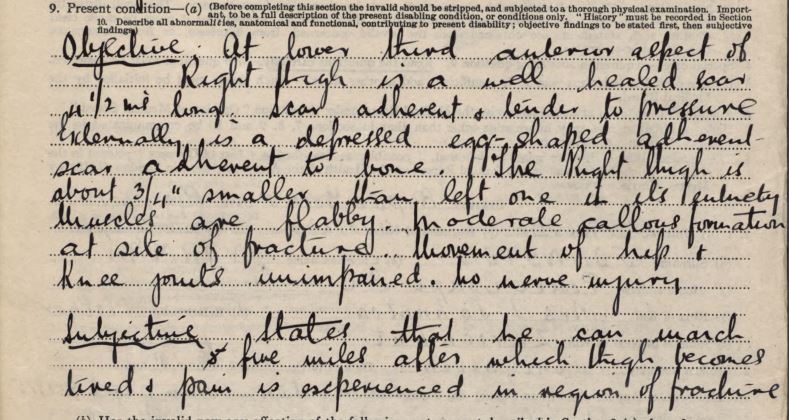 9. Present condition—(a) (Before completing this section the invalid should be stripped, and subjected to a thorough physical examination. Import-
ant, to be a full description of the present disabling condition, or conditions only. "History" must be recorded in Section
10. Describe all abnormalities, anatomical and functional, contributing to present disability; objective findings to be stated first, then subjective
findings)
Objective. At lower third anterior aspect of
Right thigh is a well healed scar
4 1/2 ins long. Scar adherent & tender to pressure
Externally is a depressed egg-shaped adherent
scar adherent to bone. The Right thigh is
about 3/4" smaller than left one in its entirety
Muscles are flabby. Moderate callous formation
at site of fracture. Movement of hip &
Knee joints unimpaired. No nerve injury
Subjective States that he can march
five miles after which thigh becomes
tired & pain is experienced in region of fracture